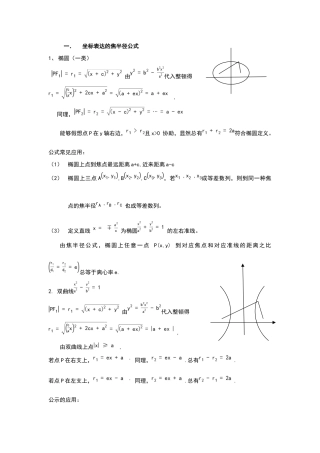 一、 坐标表达的焦半径公式
1、 椭圆（一类）
|PF₁| = r₁ = √((x + c)² + y²) 由y² = b² - b²x²/a²代入整顿得
r₁ = √(c²/a² x² + 2cx + a²) = √((a + ex)²) = a + ex .
同理，|PF₂| = r₂ = √((x - c)² + y²) = … = a - ex
能够假想点P在y轴右边，r₁ > r₂且x>0 协助，显然总有r₁ + r₂ = 2a符合椭圆定义。
公式常见应用：
（1） 椭圆上点到焦点最近距离a+c, 近来距离a-c
（2） 椭圆上三点A(x₁, y₁) B(x₂, y₂) C(x₃, y₃)。若x₁、x₂、x₃成等差数列，则到同一种焦
点的焦半径r_A、r_B、r_C 也成等差数列。
（3） 定义直线 x = ∓ a²/c 为椭圆 的左右准线。
由焦半径公式，椭圆上任意一点 P(x, y) 到对应焦点和对应准线的距离之比
总等于离心率a.
2、双曲线x²/a² - y²/b² = 1
|PF₁| = r₁ = √((x + c)² + y²) 由 代入整顿得
r₁ = √(c²/a² x² + 2cx + a²) = √((a + ex)²) = |a + ex| .
由双曲线上点|x| ≥ a .
若点P在右支上，r₁ = ex + a . 同理，r₂ = ex − a . 总有r₁ − r₂ = 2a .
若点P在左支上，r₁ = ex − a . 同理， . 总有r₂ − r₁ = 2a .
公示的应用：